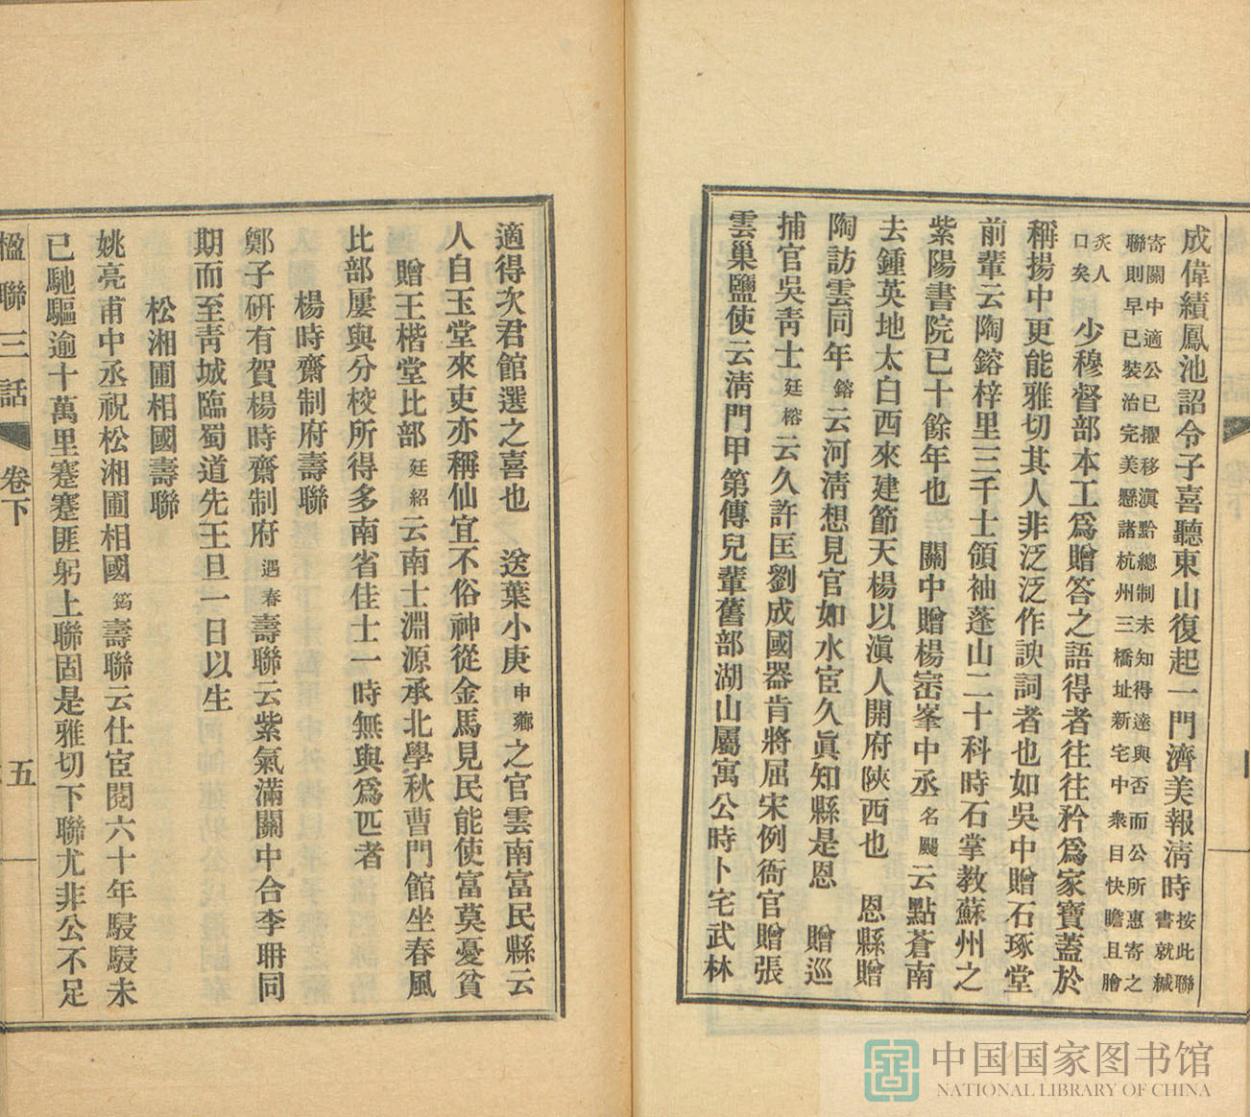 成偉績鳳池詔令子喜聽東山復起一門濟美報淸時按此聯書就緘
寄關中適公已擢移滇黔總制未知得達與否而公所惠寄之
聯則早已裝治完美懸諸杭州三橋址新宅中衆目快瞻且膾
炙人口矣　少穆督部本工爲贈答之語得者往往矜爲家寶蓋於
稱揚中更能雅切其人非泛泛作諛詞者也如吳中贈石琢堂
前輩云陶鎔梓里三千士領袖蓬山二十科時石掌教蘇州之
紫陽書院已十餘年也　關中贈楊宻峯中丞名颺云點蒼南
去鍾英地太白西來建節天楊以滇人開府陝西也　恩縣贈
陶訪雲同年鎔云河淸想見官如水宦久眞知縣是恩　贈巡
捕官吳靑士廷榕云久許匡劉成國器肯將屈宋例衙官贈張
雲巢鹽使云淸門甲第傳兒輩舊部湖山屬寓公時卜宅武林
適得次君館選之喜也　送葉小庚申薌之官雲南富民縣云
人自玉堂來吏亦稱仙宜不俗神從金馬見民能使富莫憂貧
贈王楷堂比部廷紹云南士淵源承北學秋曹門館坐春風
比部屢與分校所得多南省佳士一時無與爲匹者
楊時齋制府壽聯
鄭子硏有賀楊時齋制府遇春壽聯云紫氣滿關中合李耼同
期而至靑城臨蜀道先王旦一日以生
松湘圃相國壽聯
姚亮甫中丞祝松湘圃相國筠壽聯云仕宦閱六十年駸駸未
已馳驅逾十萬里蹇蹇匪躬上聯固是雅切下聯尤非公不足
楹聯三話　卷下　五
中国国家图书馆
NATIONAL LIBRARY OF CHINA